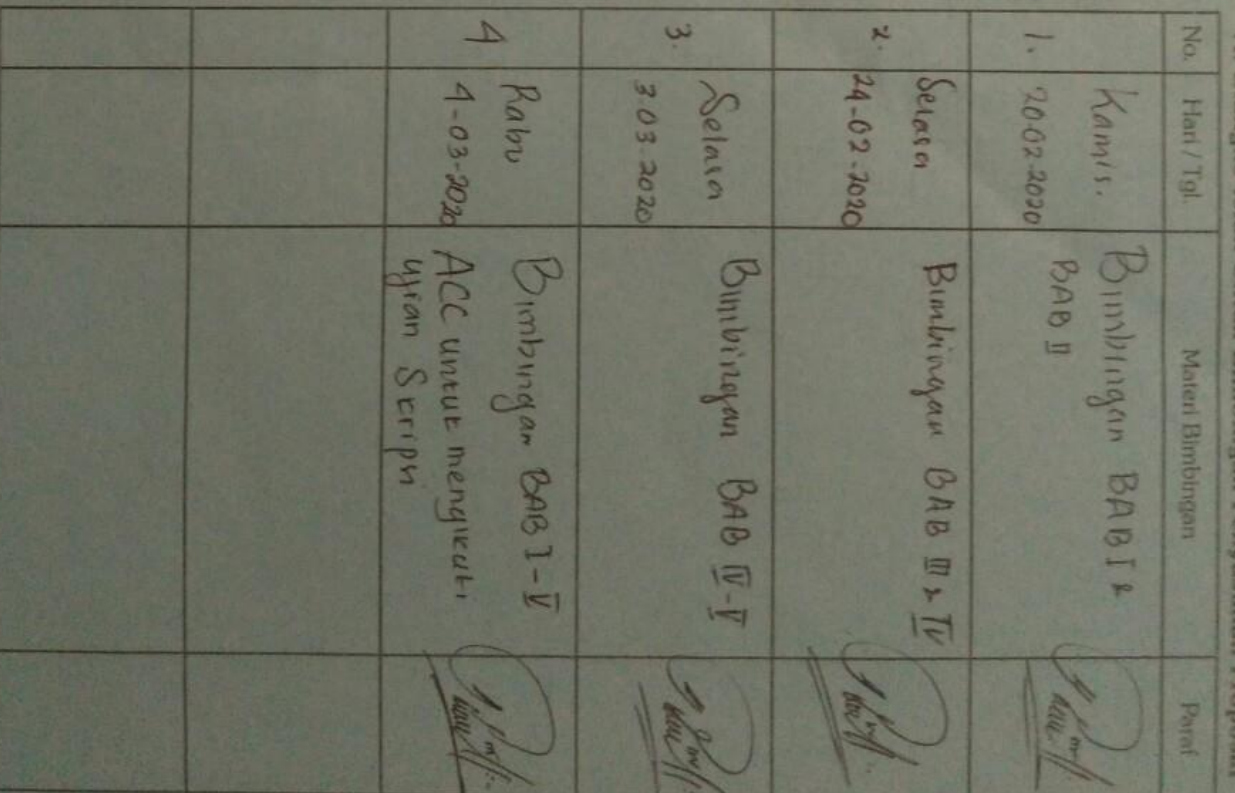 No.
Hari / Tgl.
Materi Bimbingan
Paraf
1.
Kamis.
20 02 2020
Bimbingan BAB I &
BAB II
2.
Selasa
24-02-2020
Bimbingan BAB III & IV
3.
Selasa
3 03 2020
Bimbingan BAB IV-V
4
Rabu
4-03-2020
Bimbingan BAB I-V
ACC untuk mengikuti
ujian Skripsi